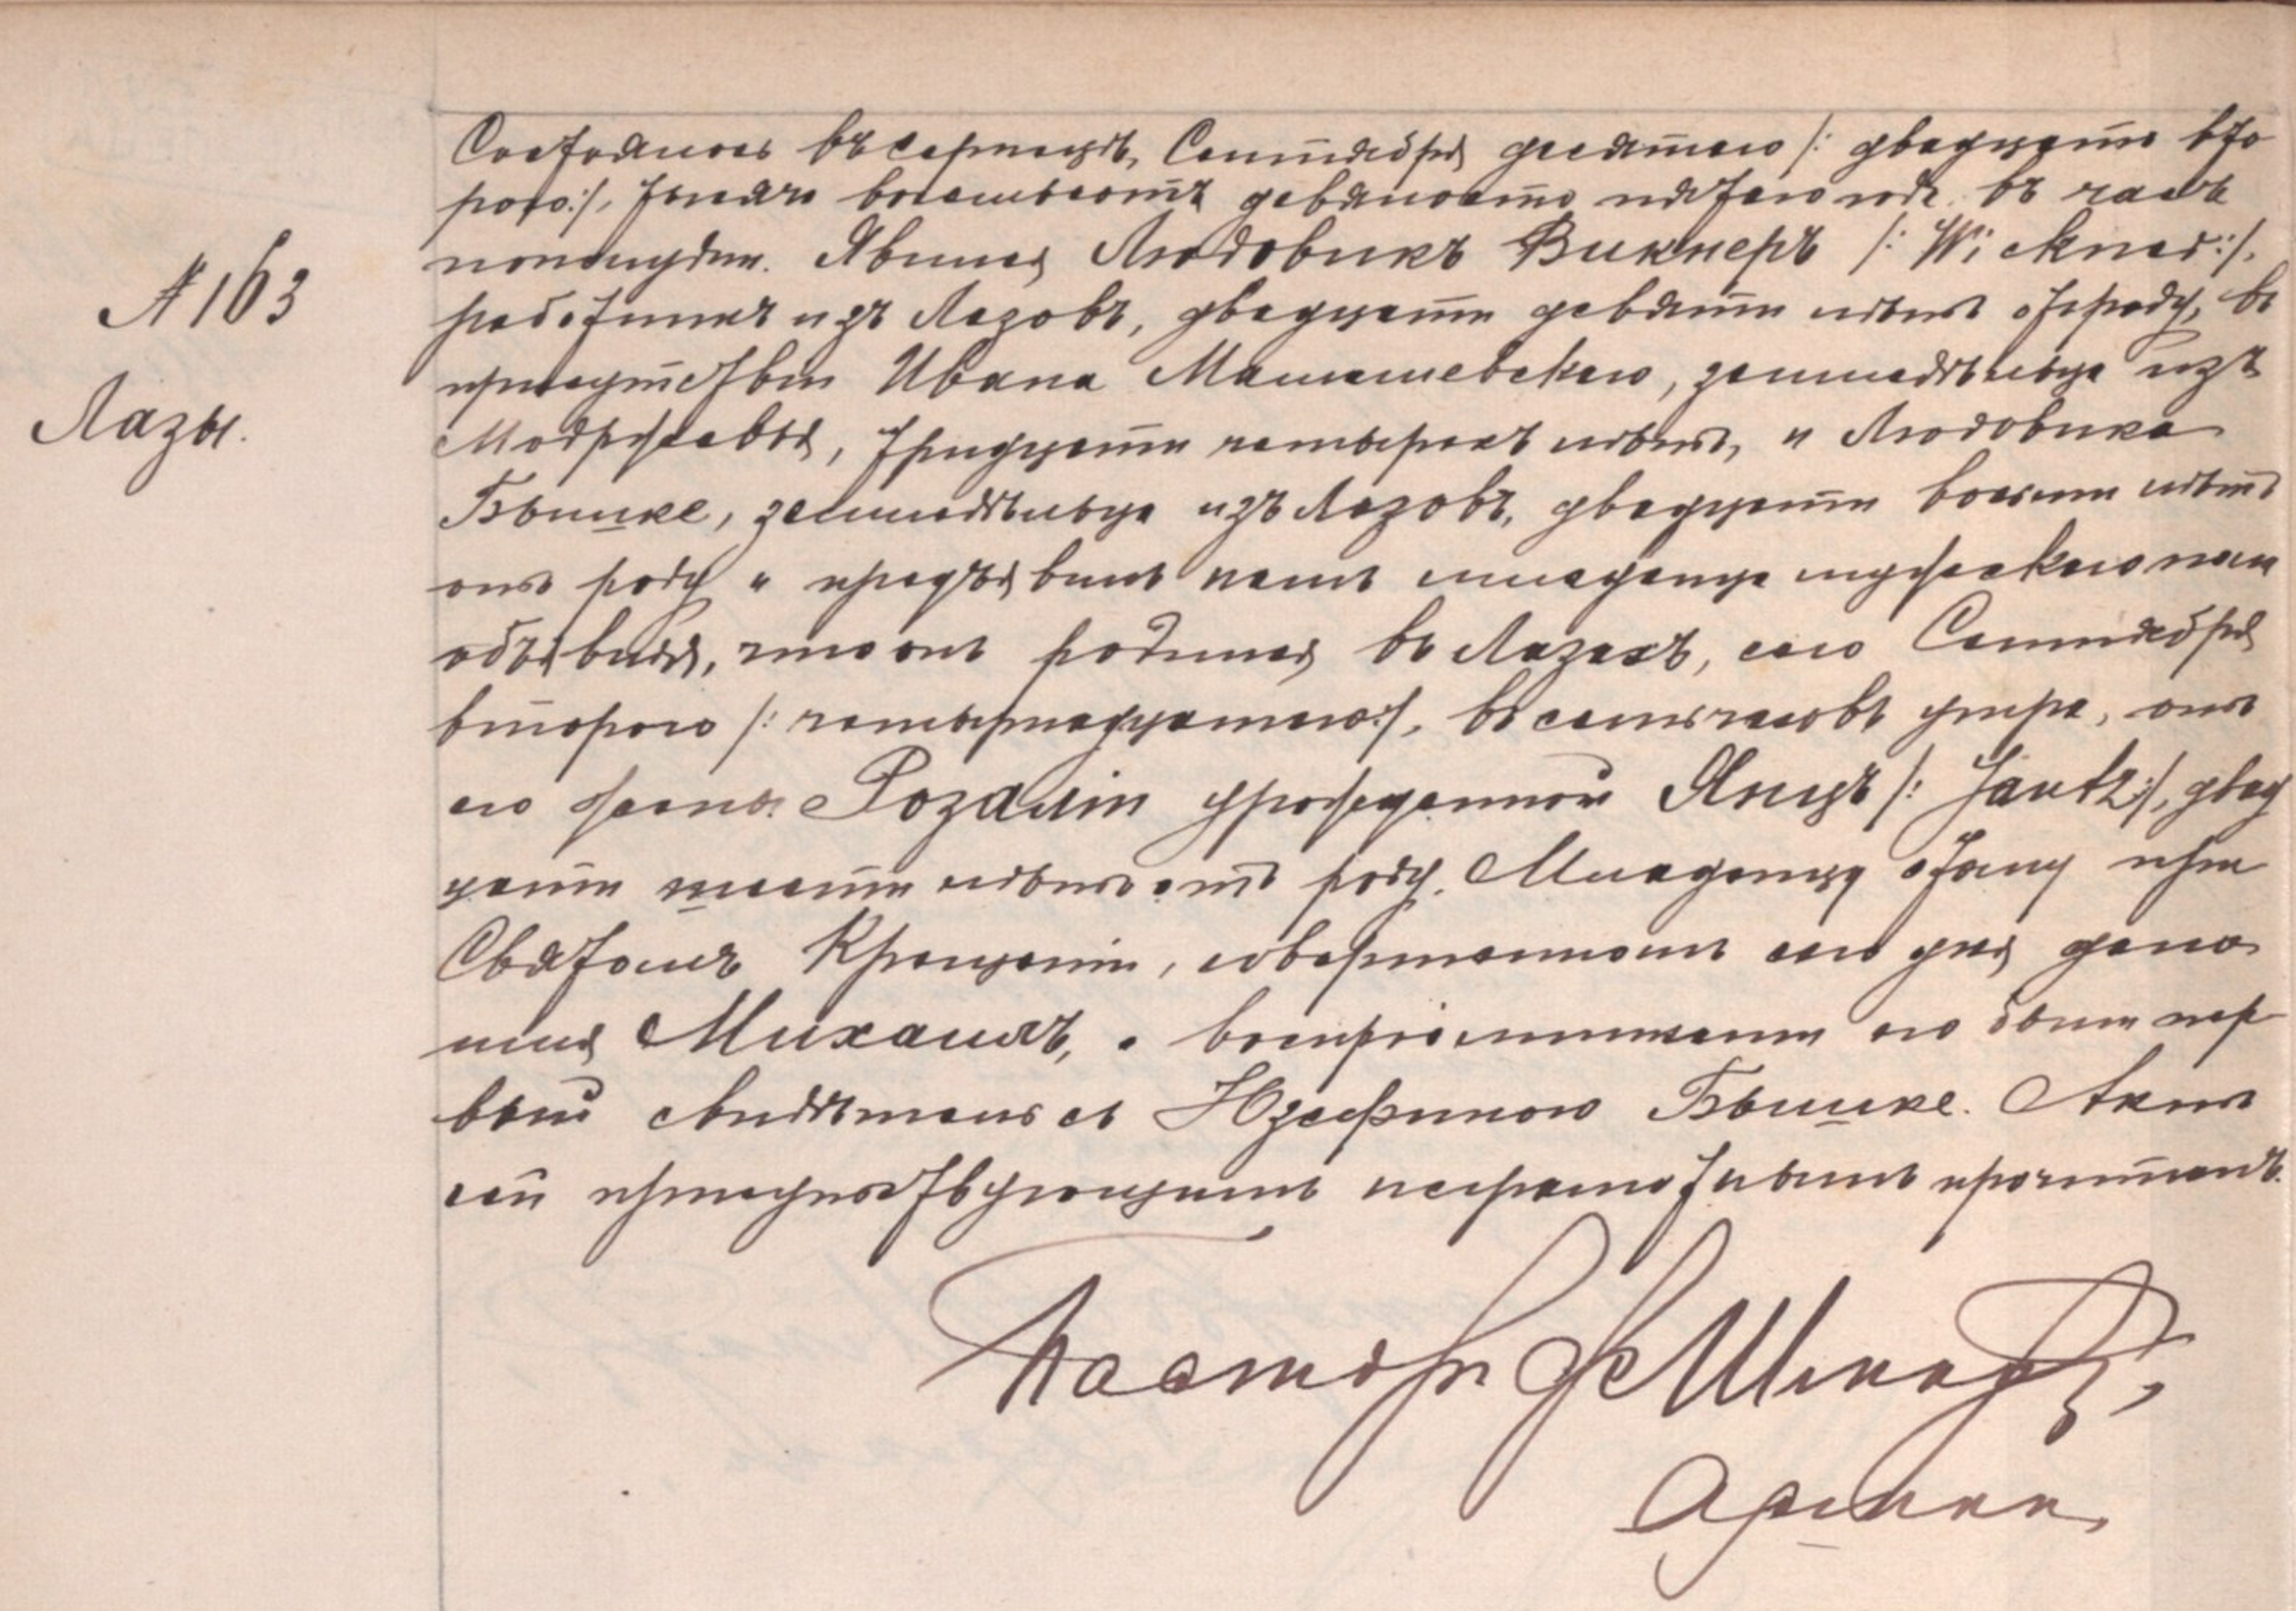 Состоялось въ Серноцкѣ, Сентября десятаго /: двадцать вто
рого :/, тысяча восемьсотъ девяносто пятаго года въ часъ
пополудни. Явился Людовикъ Викнеръ /: Wickner :/,
№ 163
работникъ изъ Лазовъ, двадцати девяти лѣтъ отъ роду, въ
присутствіи Ивана Малишевскаго, земледѣльца изъ
Лазы.
Модржевы, тридцати четырехъ лѣтъ, и Людовика
Бышке, земледѣльца изъ Лазовъ, двадцати восьми лѣтъ
отъ роду и предъявилъ намъ младенца мужескаго пола
объявляя, что онъ родился въ Лазахъ, сего Сентября
второго /: четырнадцатаго :/, въ семь часовъ утра, отъ
его жены Розаліи урожденной Янцъ /: Jantz :/, двад
цати шести лѣтъ отъ роду. Младенцу этому при
Святомъ Крещеніи, совершенномъ сего дня дано
имя Михаилъ, а воспріемниками его были пер
вый свидѣтель съ Юзефиною Бышке. Актъ
сей присутствующимъ неграмотнымъ прочитанъ.
Пасторъ